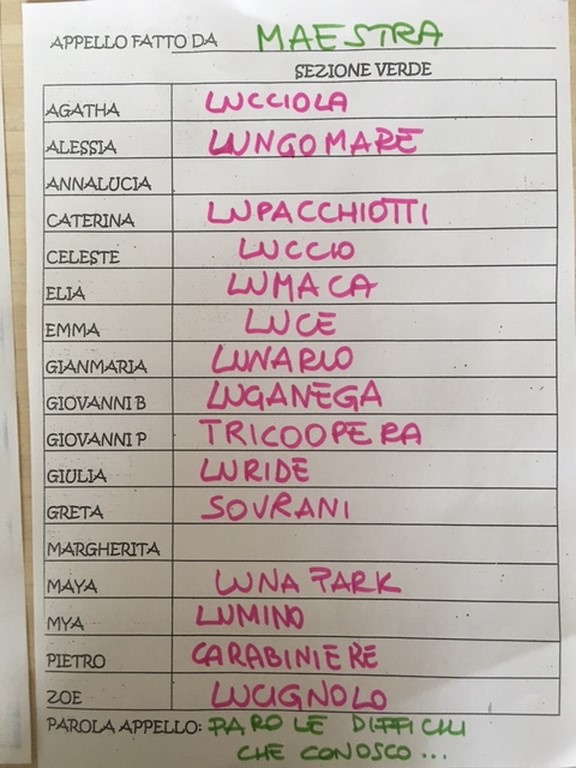 APPELLO FATTO DA MAESTRA
SEZIONE VERDE
AGATHA LUCCIOLA
ALESSIA LUNGOMARE
ANNALUCIA
CATERINA LUPACCHIOTTI
CELESTE LUCCIO
ELIA LUMACA
EMMA LUCE
GIANMARIA LUNARIO
GIOVANNI B LUGANEGA
GIOVANNI P TRICOOPERA
GIULIA LURIDE
GRETA SOVRANI
MARGHERITA
MAYA LUNA PARK
MYA LUMINO
PIETRO CARABINIERE
ZOE LUCIGNOLO
PAROLA APPELLO: PAROLE DIFFICILI
CHE CONOSCO...